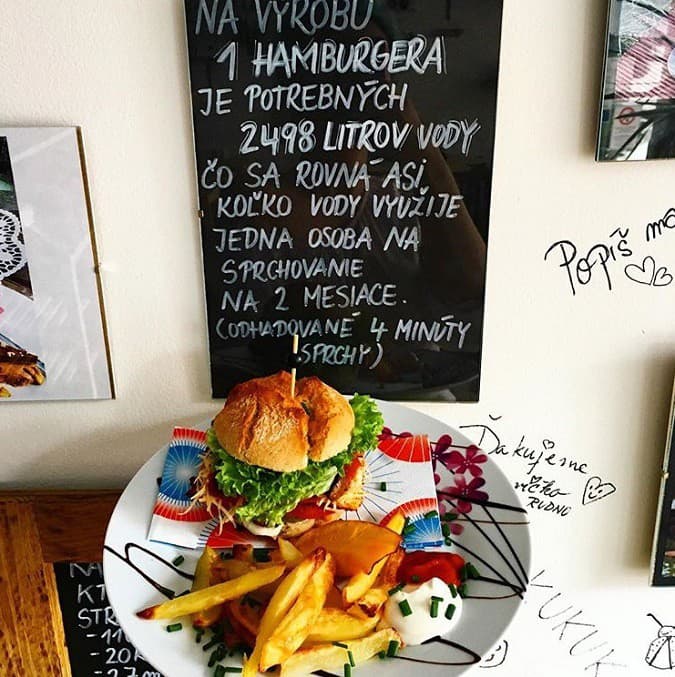 NA VÝROBU
1 HAMBURGERA
JE POTREBNÝCH
2498 LITROV VODY
ČO SA ROVNÁ ASI,
KOĽKO VODY VYUŽIJE
JEDNA OSOBA NA
SPRCHOVANIE
NA 2 MESIACE.
(ODHADOVANÉ 4 MINÚTY
SPRCHY)
Popíš
Ďakujeme
KUKUK
KT
STR
- 11
- 20K
- 2,7 m